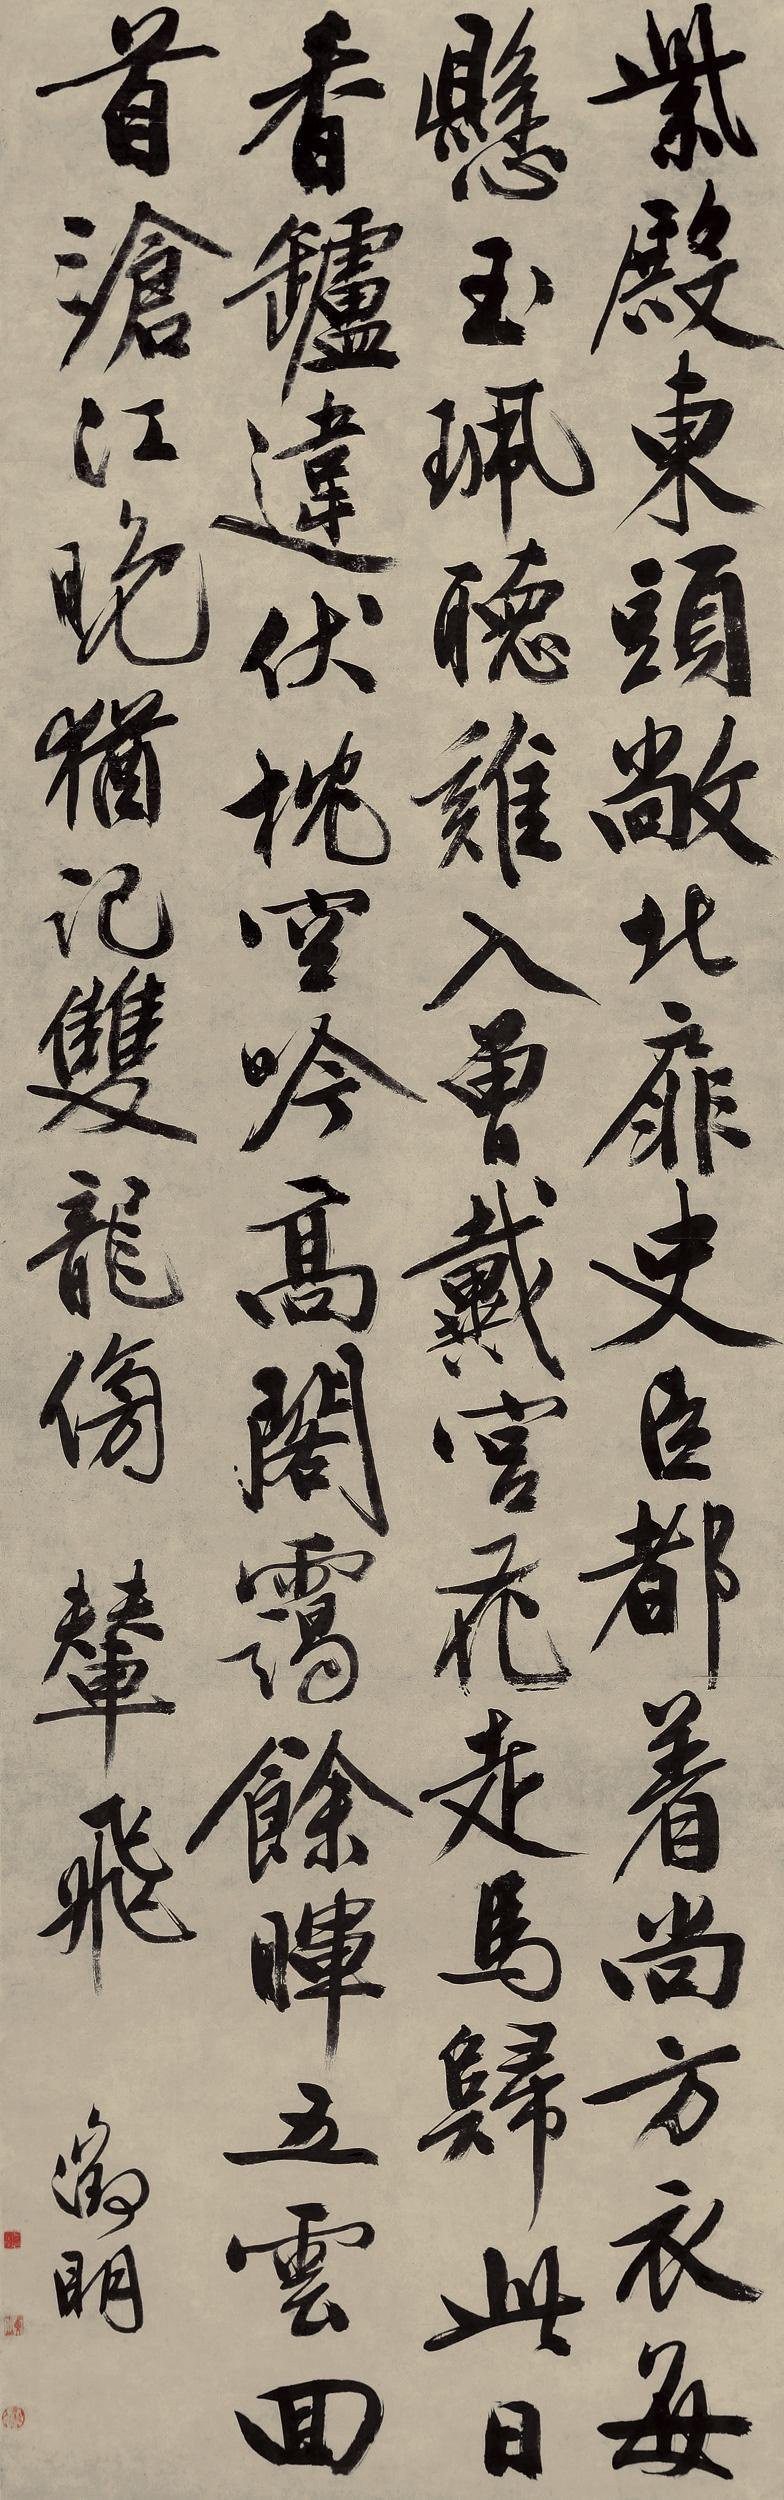 紫殿東頭敞北扉史臣都着尚方衣每
懸玉珮聽雞入曾戴宮花走馬歸此日
香罏違伏枕空吟高閣靄餘暉五雲回
首滄江晚猶記雙龍傍輦飛
徵明